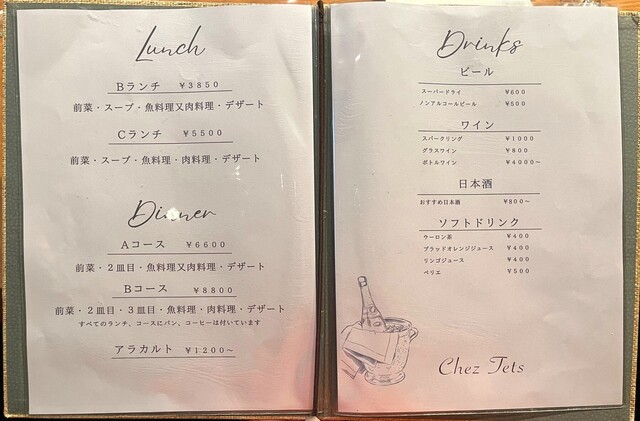 Lunch
Bランチ ¥3850
前菜・スープ・魚料理又肉料理・デザート
Cランチ ¥5500
前菜・スープ・魚料理・肉料理・デザート
Dinner
Aコース ¥6600
前菜・2皿目・魚料理又肉料理・デザート
Bコース ¥8800
前菜・2皿目・3皿目・魚料理・肉料理・デザート
すべてのランチ、コースにパン、コーヒーは付いています
アラカルト ¥1200~
Drinks
ビール
スーパードライ ¥600
ノンアルコールビール ¥500
ワイン
スパークリング ¥1000
グラスワイン ¥800
ボトルワイン ¥4000~
日本酒
おすすめ日本酒 ¥800~
ソフトドリンク
ウーロン茶 ¥400
ブラッドオレンジジュース ¥400
リンゴジュース ¥400
ペリエ ¥500
Chez Tets